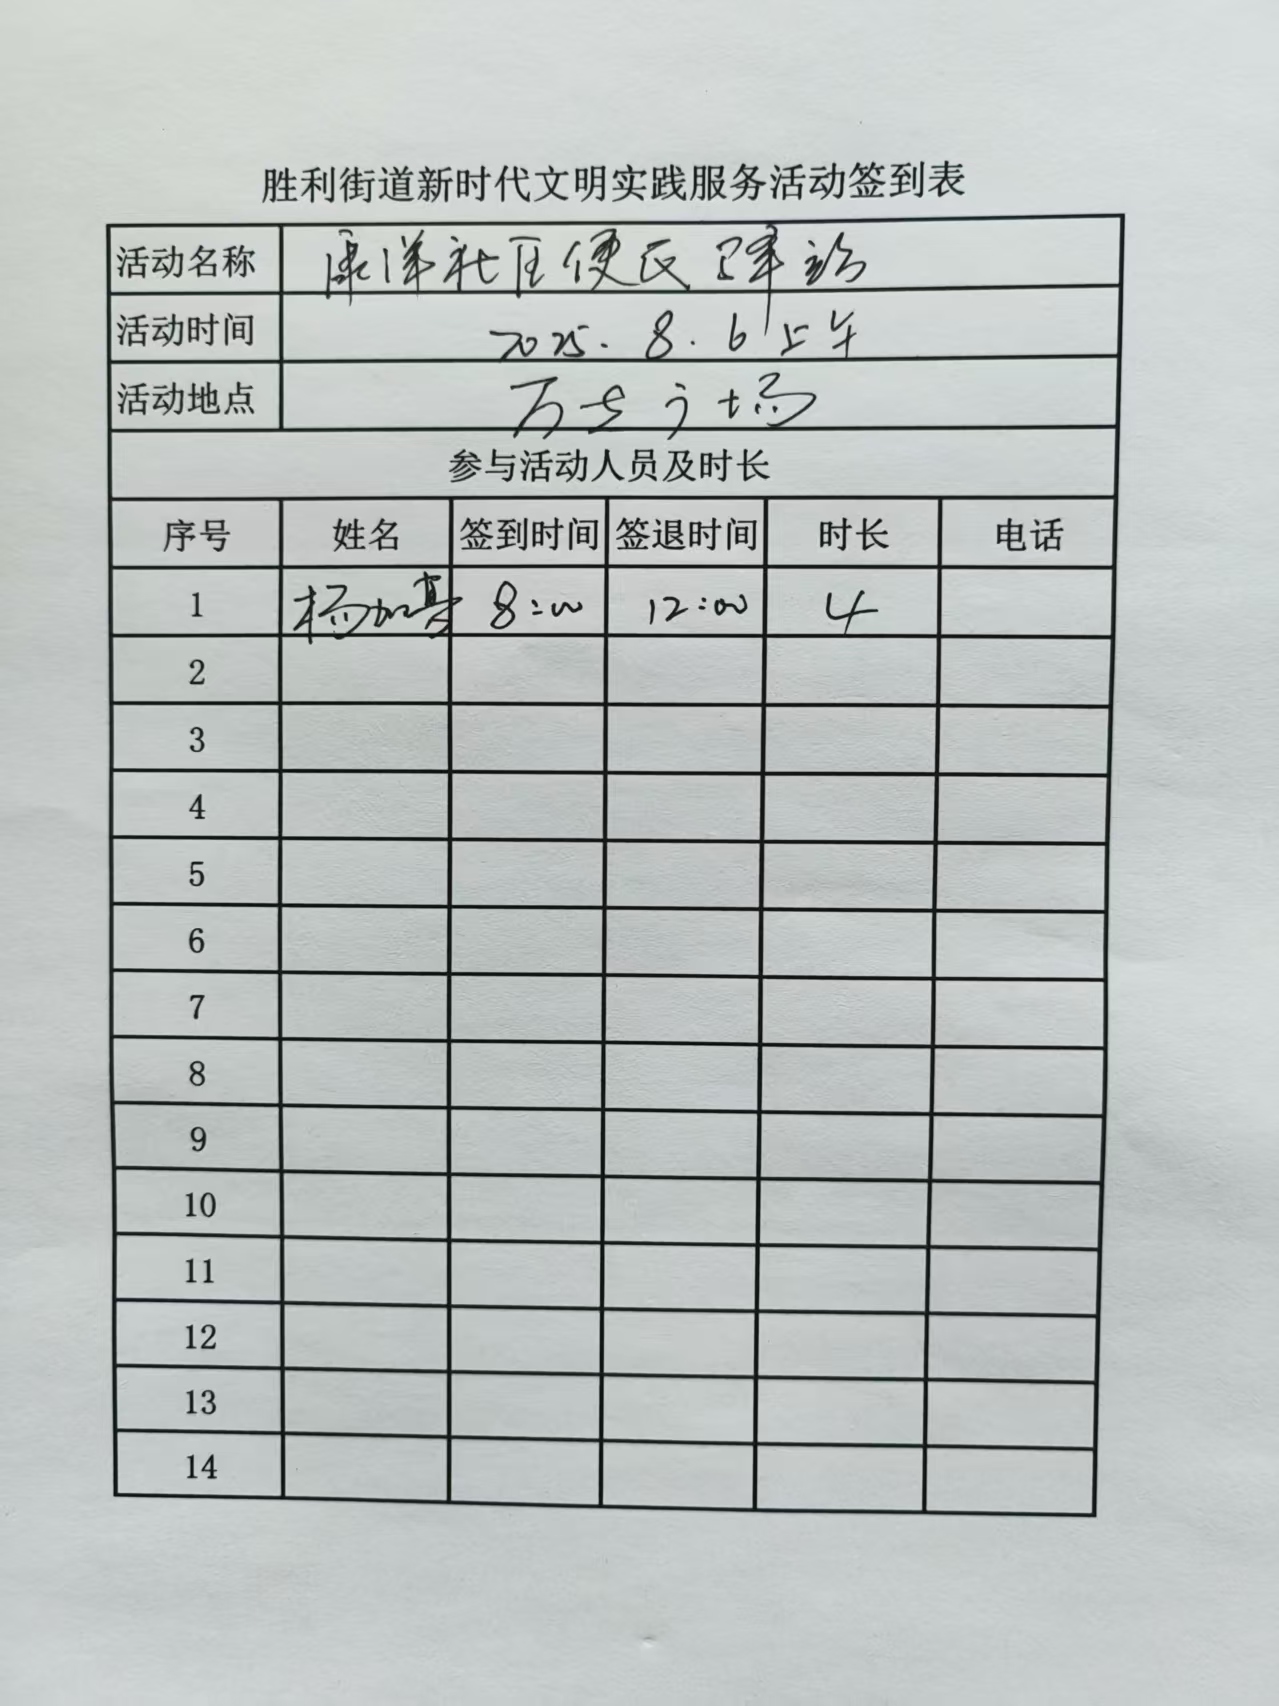 胜利街道新时代文明实践服务活动签到表
活动名称 康洋社区便民
活动时间 2025.8.6上午
活动地点 万达广场
参与活动人员及时长
序号 姓名 签到时间 签退时间 时长 电话
1 杨加 8:00 12:00 4
2
3
4
5
6
7
8
9
10
11
12
13
14